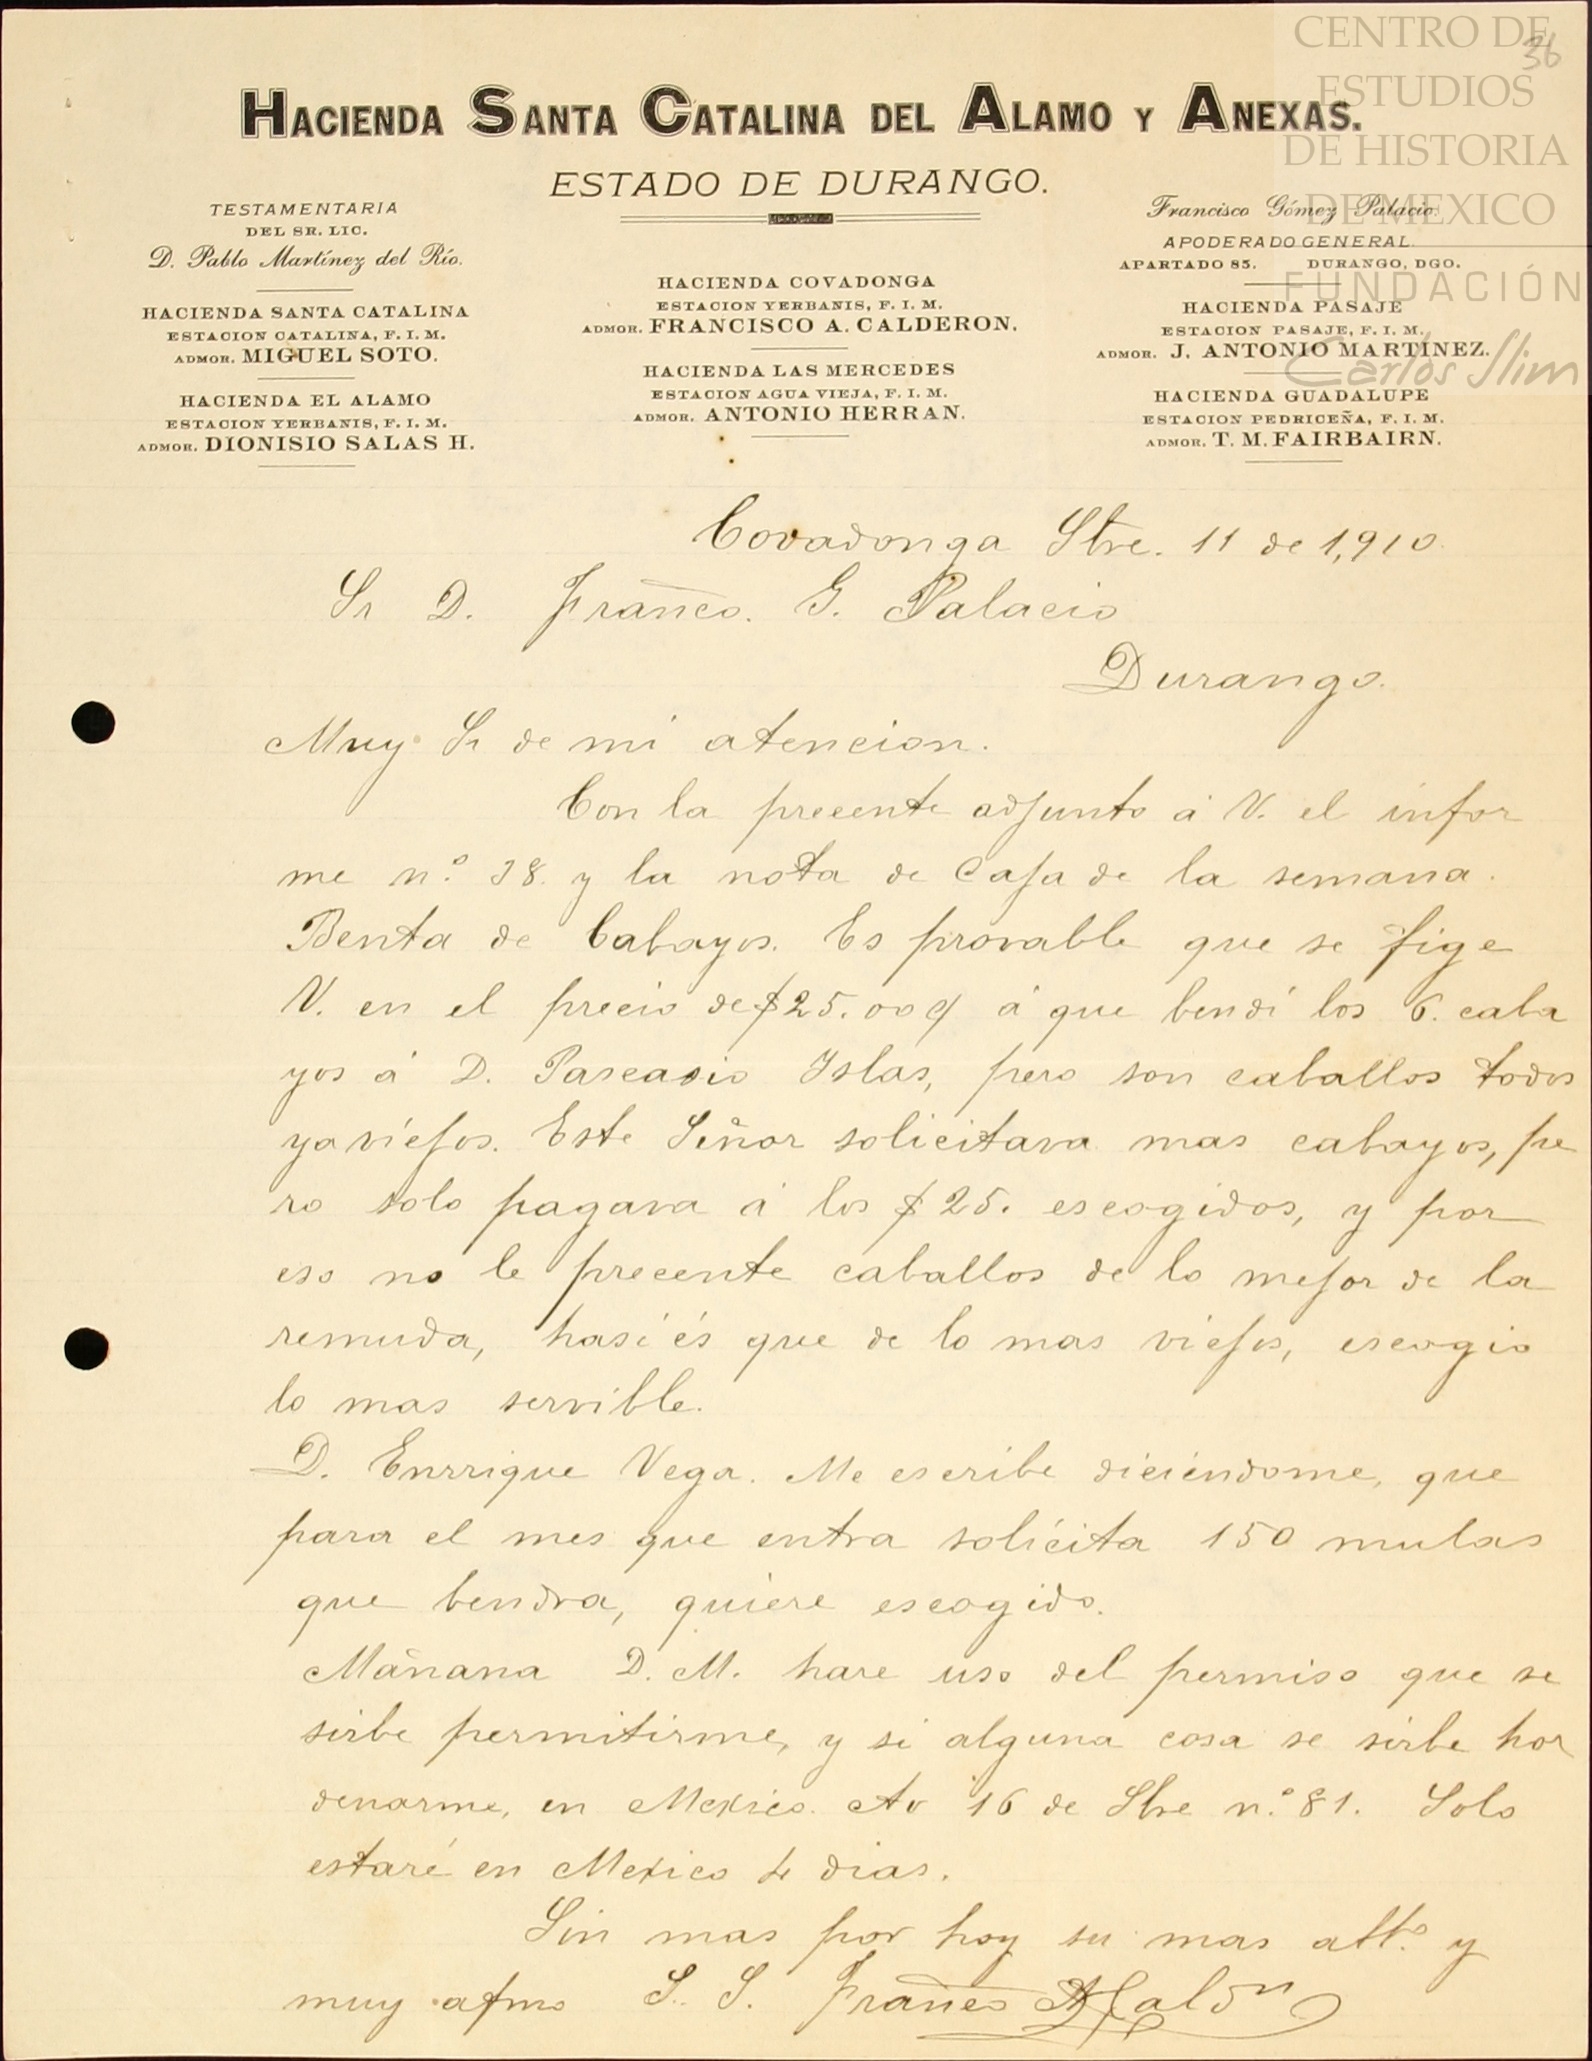 CENTRO DE
ESTUDIOS
DE HISTORIA
DE MEXICO
FUNDACIÓN
Carlos Slim
36
HACIENDA SANTA CATALINA DEL ALAMO Y ANEXAS.
ESTADO DE DURANGO.
TESTAMENTARIA
DEL SR. LIC.
D. Pablo Martínez del Río.
HACIENDA SANTA CATALINA
ESTACION CATALINA, F. I. M.
ADMOR. MIGUEL SOTO.
HACIENDA EL ALAMO
ESTACION YERBANIS, F. I. M.
ADMOR. DIONISIO SALAS H.
HACIENDA COVADONGA
ESTACION YERBANIS, F. I. M.
ADMOR. FRANCISCO A. CALDERON.
HACIENDA LAS MERCEDES
ESTACION AGUA VIEJA, F. I. M.
ADMOR. ANTONIO HERRAN.
Francisco Gómez Palacio.
APODERADO GENERAL.
APARTADO 85. DURANGO, DGO.
HACIENDA PASAJE
ESTACION PASAJE, F. I. M.
ADMOR. J. ANTONIO MARTINEZ.
HACIENDA GUADALUPE
ESTACION PEDRICEÑA, F. I. M.
ADMOR. T. M. FAIRBAIRN.
Covadonga Stre. 11 de 1,910.
Sr D. Franco. G. Palacio
Durango.
Muy Sr de mi atencion.
Con la precente adjunto á V. el infor
me n.º 38. y la nota de Caja de la semana.
Benta de Cabayos. Es provable que se fige
V. en el precio de $25.00 á que bendí los 6. caba
yos á D. Pascasio Islas, pero son caballos todos
ya viejos. Este Señor solicitava mas cabayos, pe
ro solo pagava á los $25. escogidos, y por
eso no le precente caballos de lo mejor de la
remuda, hasi és que de lo mas viejos, escogio
lo mas servible.
D. Enrrique Vega. Me escribe diciendome, que
para el mes que entra solícita 150 mulas
que bendra, quiere escogido.
Mañana D. M. hare uso del permiso que se
sirbe permitirme, y si alguna cosa se sirbe hor
denarme, en Mexico. Av 16 de Stre n.º 81. Solo
estaré en Mexico 4 dias.
Sin mas por hoy su mas att.º y
muy afmo S. S. Franco A Caldon